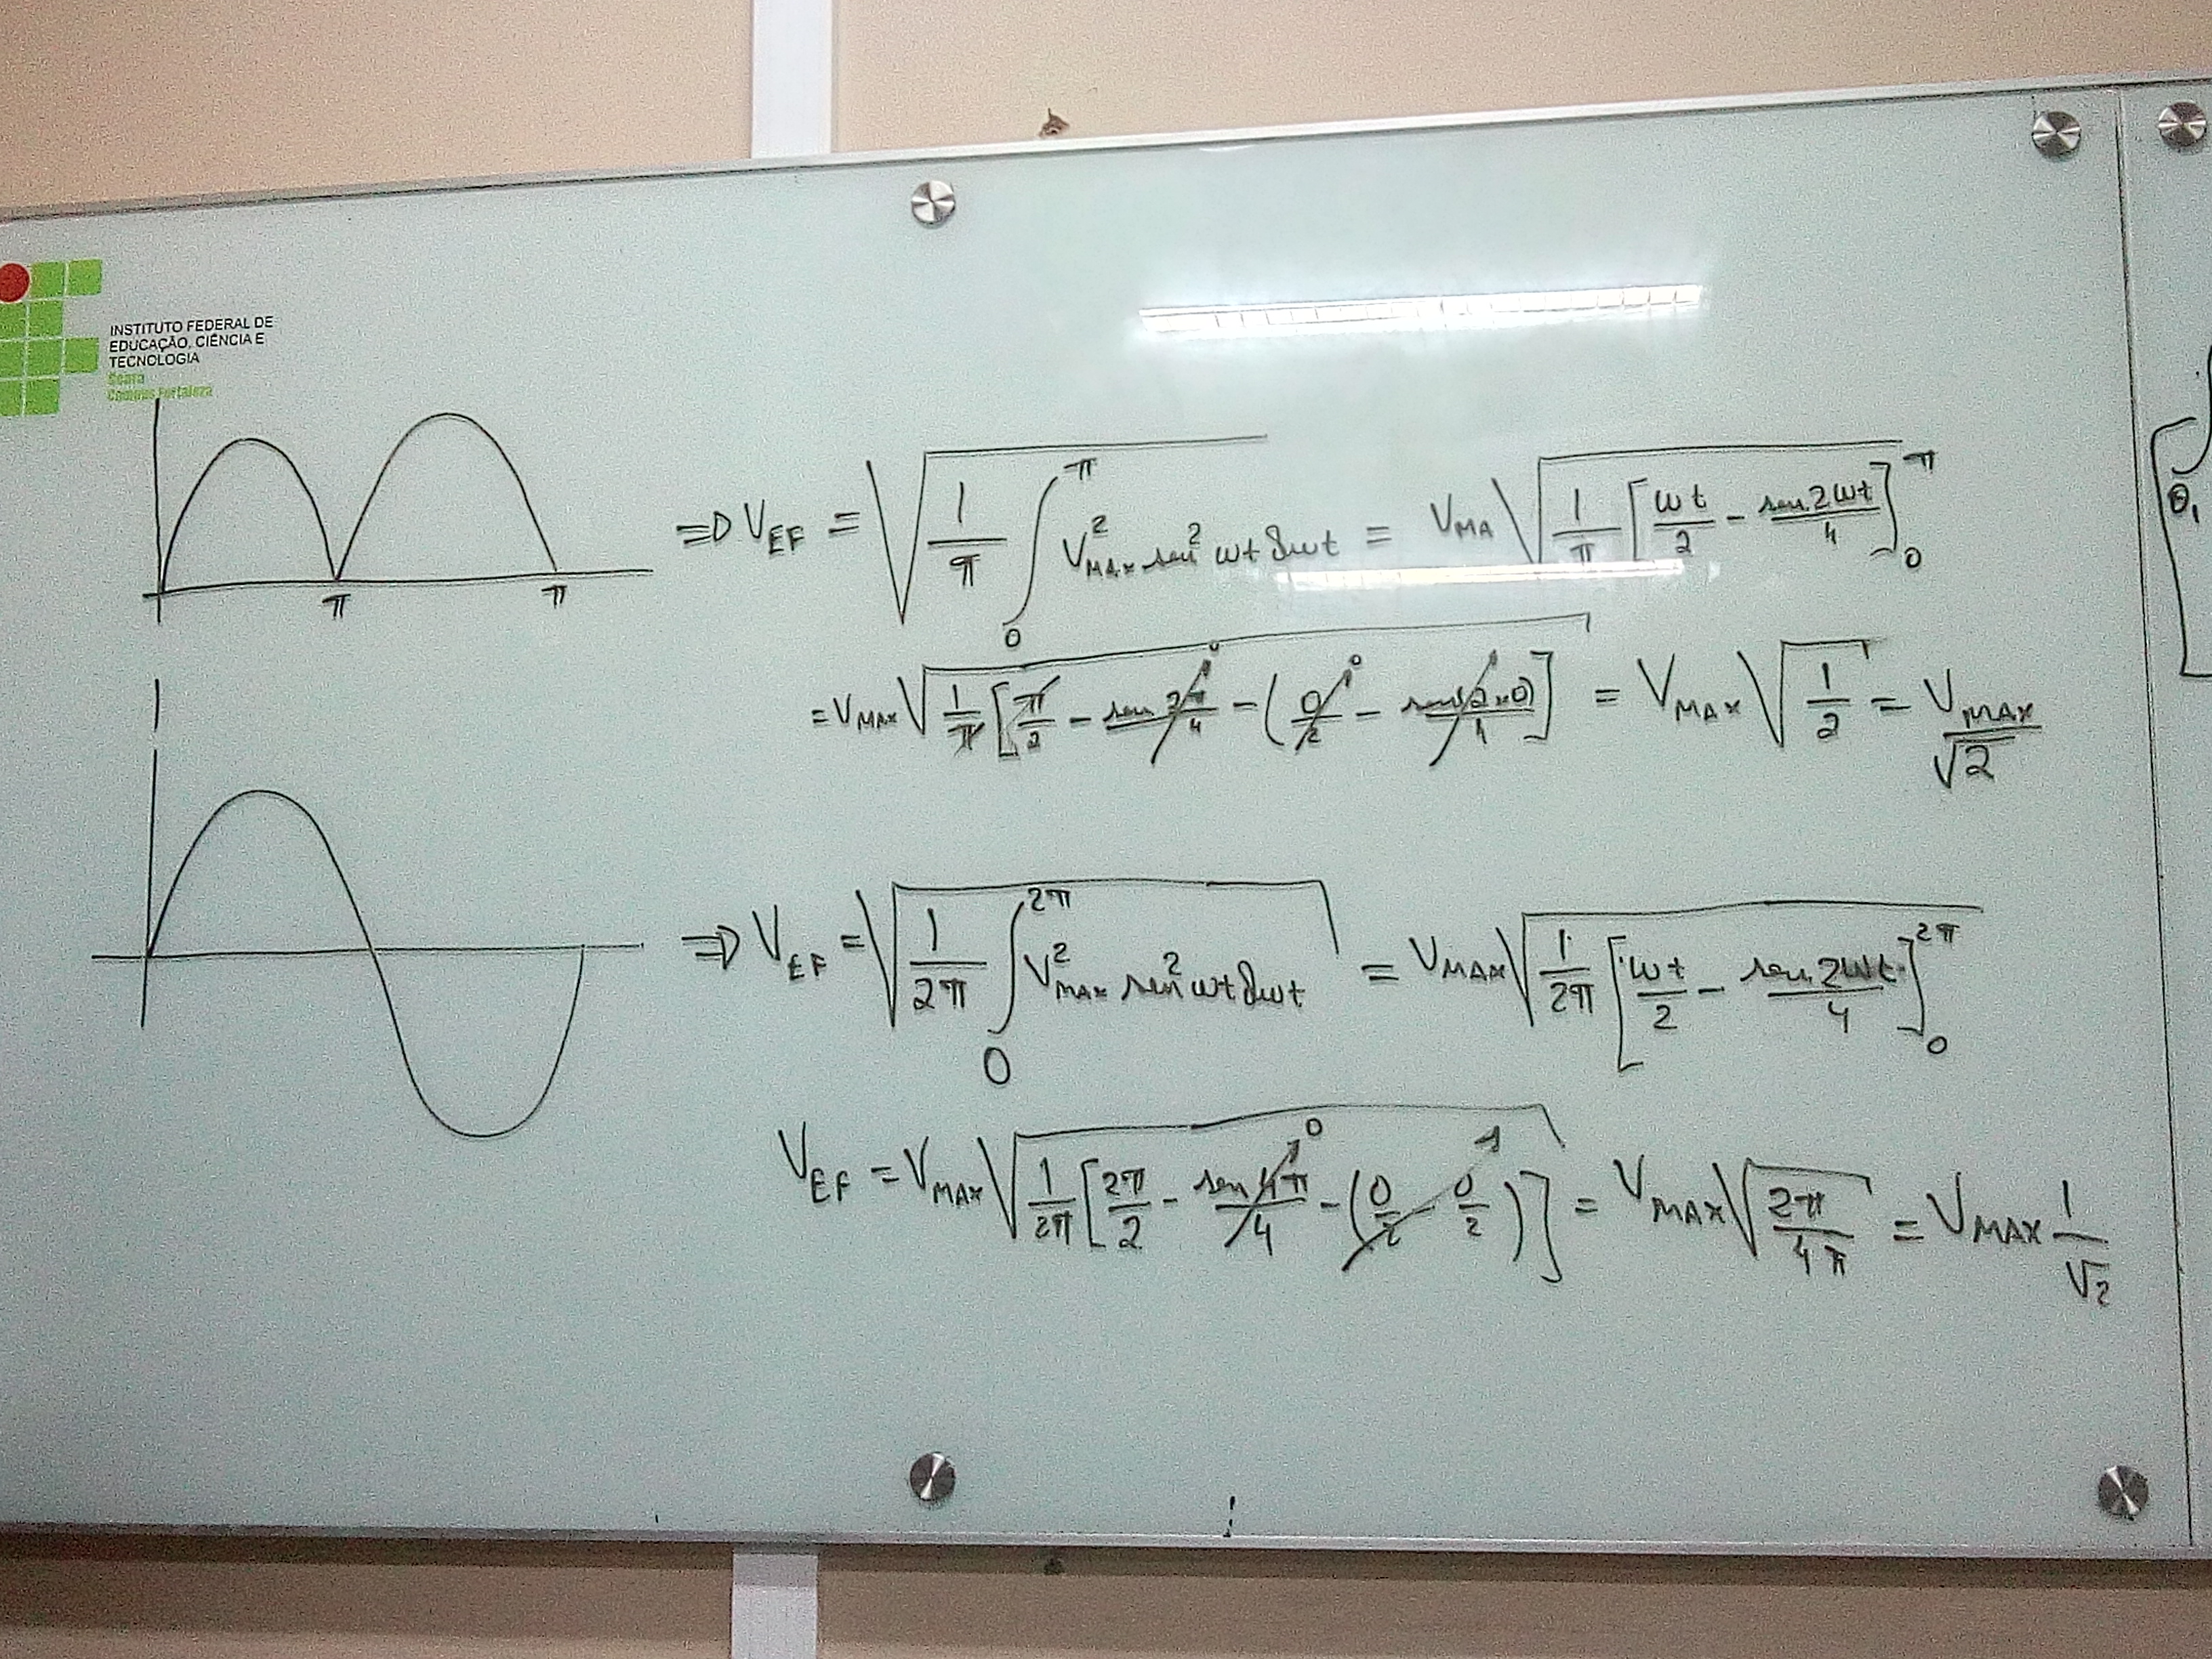 INSTITUTO FEDERAL DE
EDUCAÇÃO, CIÊNCIA E
TECNOLOGIA
Ceará
Campus Fortaleza
π π
⇒ V_EF = √(1/π ∫_0^π V_MAX^2 sen^2 wt dwt) = V_MA √(1/π [wt/2 - sen 2wt/4]_0^π)
= V_MAX √(1/π [π/2 - sen 2π/4 - (0/2 - sen(2x0)/4)]) = V_MAX √(1/2) = V_MAX/√2
⇒ V_EF = √(1/2π ∫_0^2π V_MAX^2 sen^2 wt dwt) = V_MAX √(1/2π [wt/2 - sen 2wt/4]_0^2π)
V_EF = V_MAX √(1/2π [2π/2 - sen 4π/4 - (0/2 - 0/2)]) = V_MAX √(2π/4π) = V_MAX 1/√2
θ_1